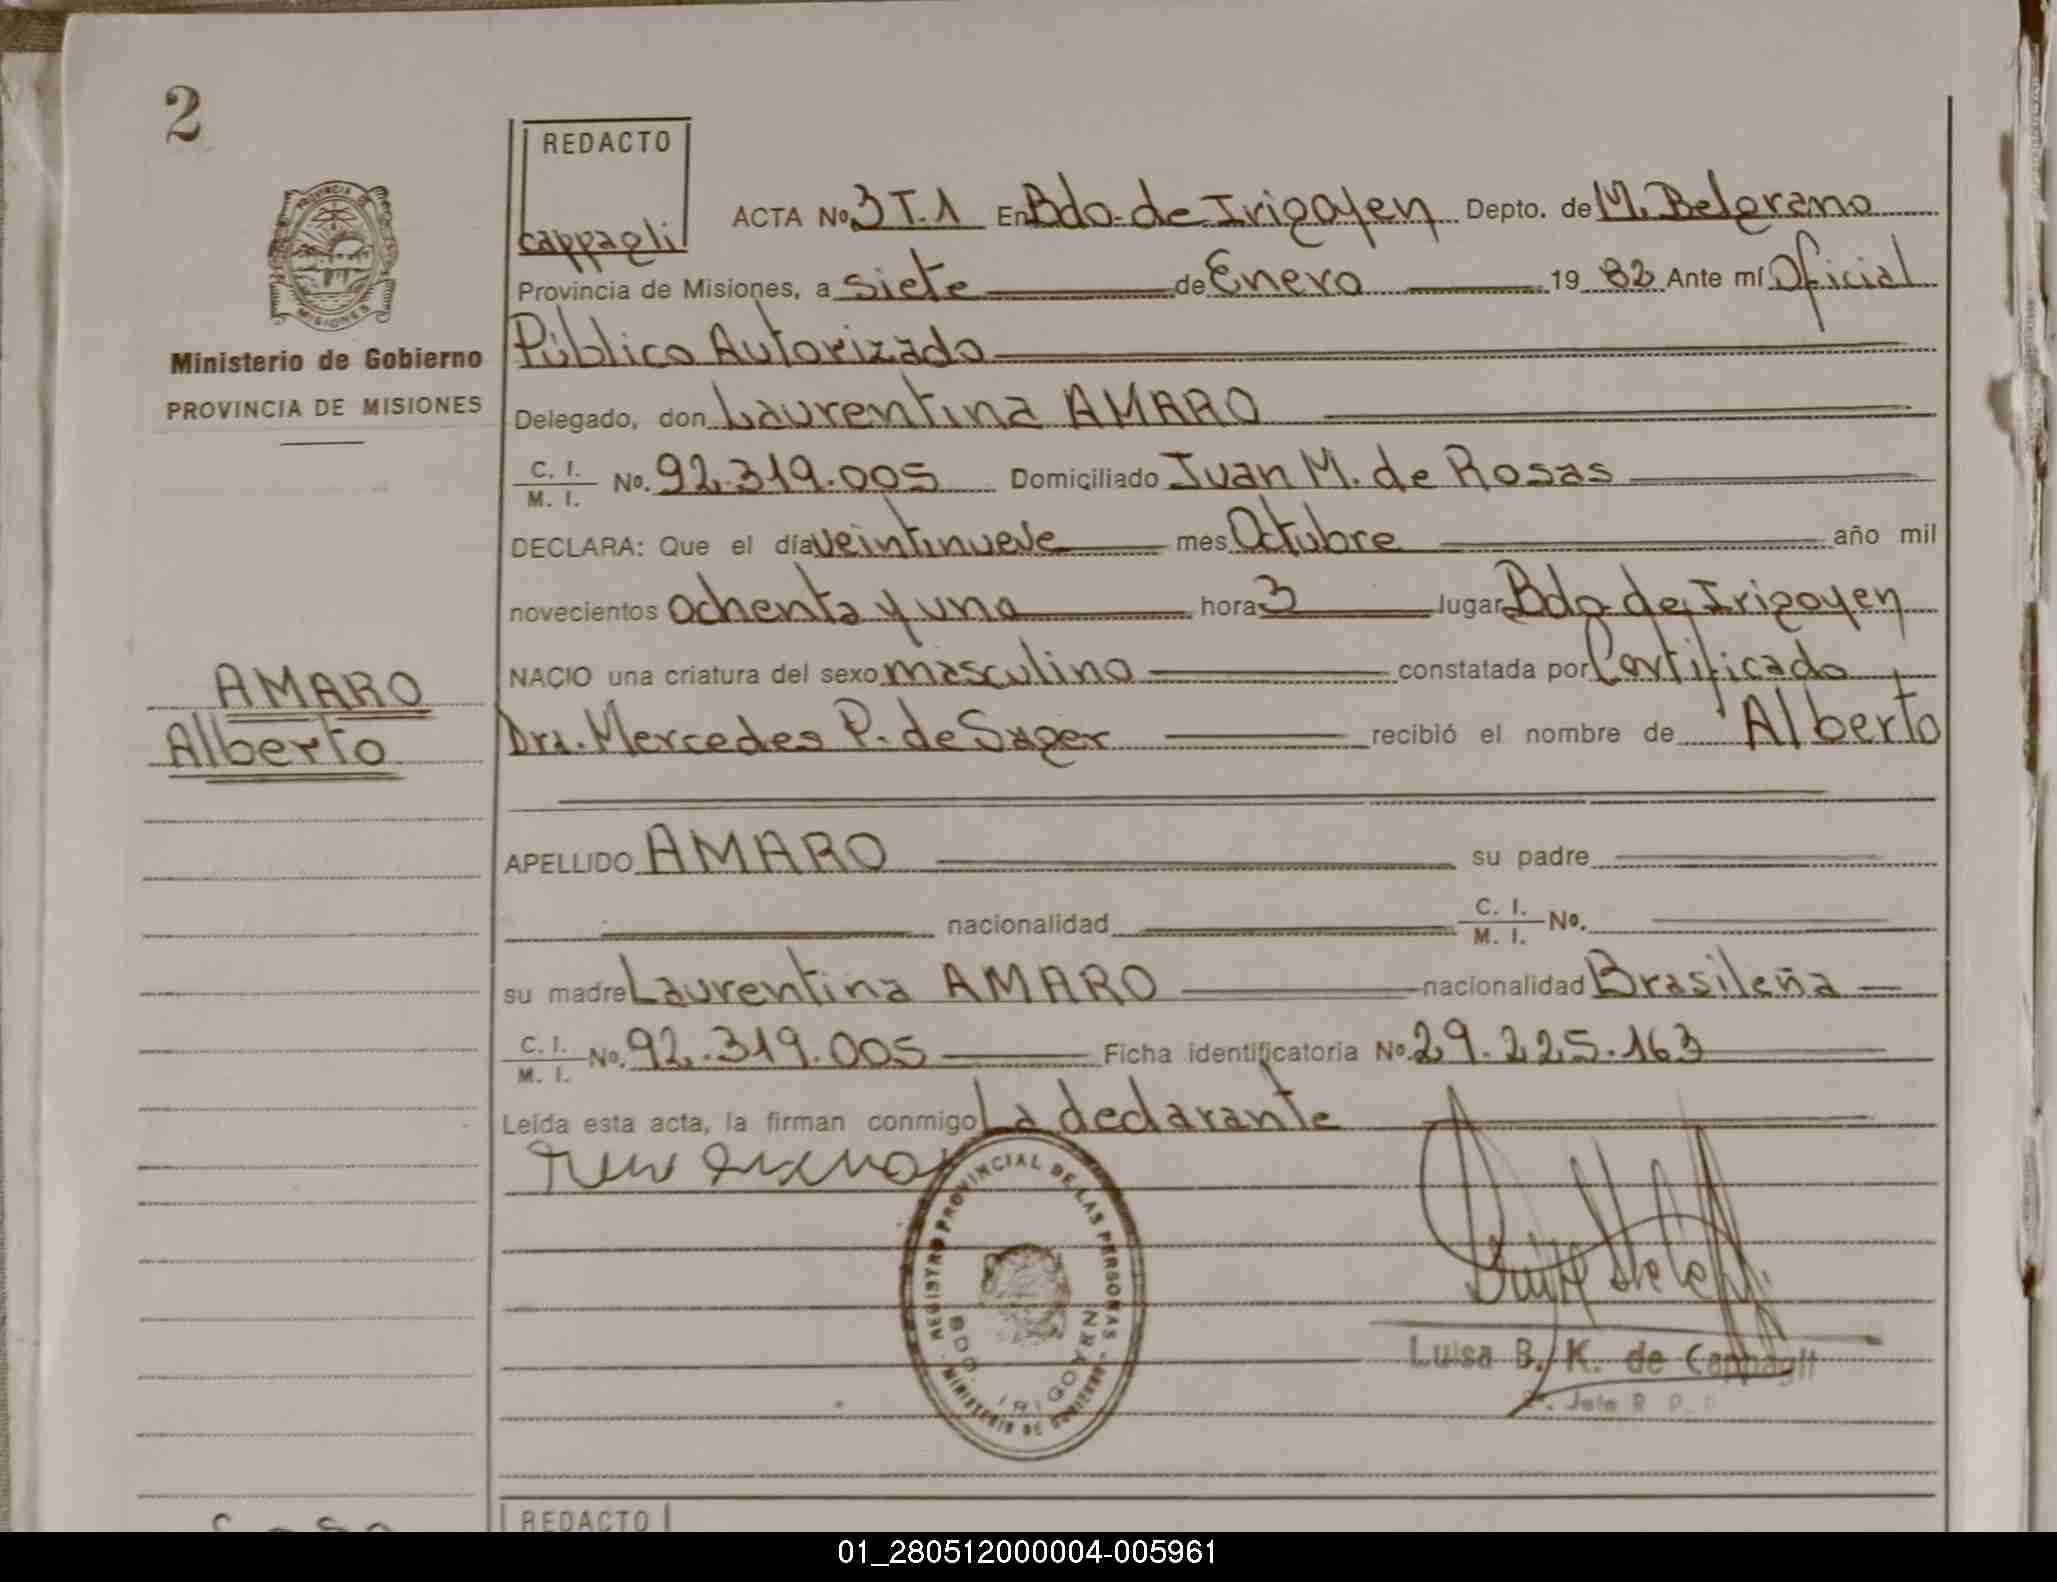 2
REDACTO
cappagli
ACTA No 3 T.1 En Bdo. de Irigoyen Depto. de M. Belgrano
PROVINCIA DE MISIONES
Provincia de Misiones, a siete de Enero 19 82 Ante mí Oficial
Ministerio de Gobierno
PROVINCIA DE MISIONES
Público Autorizado
Delegado, don Laurentina AMARO
C. I. M. I. No. 92.319.005 Domiciliado Juan M. de Rosas
DECLARA: Que el día veintinueve mes Octubre año mil
novecientos ochenta y uno hora 3 lugar Bdo. de Irigoyen
NACIO una criatura del sexo masculino constatada por Certificado
AMARO
Alberto
Dra. Mercedes P. de Sager recibió el nombre de Alberto
APELLIDO AMARO su padre
nacionalidad C. I. M. I. No.
su madre Laurentina AMARO nacionalidad Brasileña
C. I. M. I. No. 92.319.005 Ficha identificatoria No. 29.225.163
Leída esta acta, la firman conmigo La declarante
REGISTRO PROVINCIAL DE LAS PERSONAS
BDO. IRIGOYEN
MINISTERIO DE GOBIERNO
Luisa B. K. de Cappagli
REDACTO
01_280512000004-005961